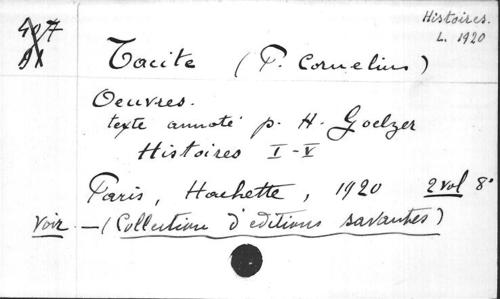 Histoires.
L. 1920
Tacite (P. Cornelius)
Oeuvres.
texte annoté p. H. Goelzer
Histoires I-V
Paris, Hachette, 1920 2 vol 8°
Voir - (Collection d'editions savantes)